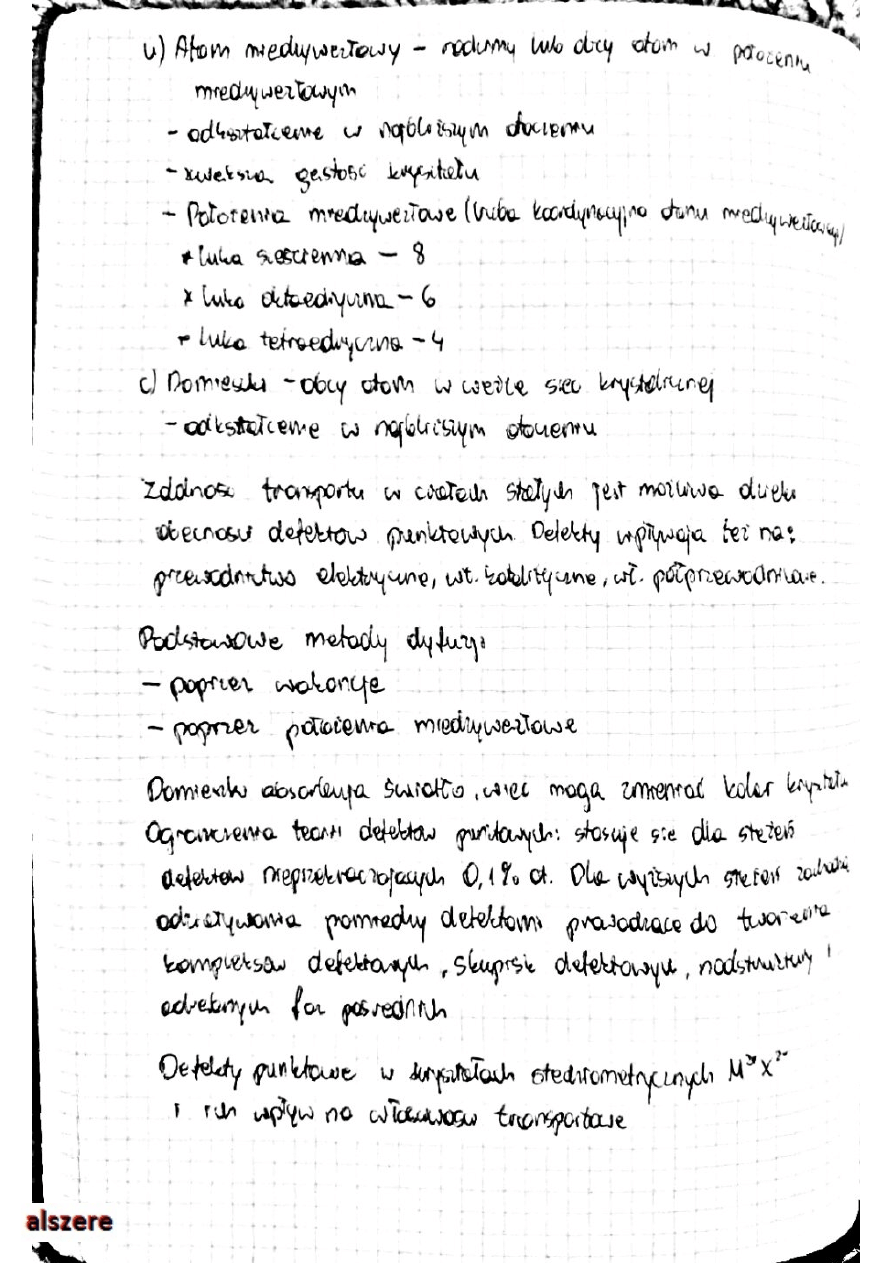 b) Atom międzywęzłowy - rodzimy lub obcy atom w położeniu
międzywęzłowym
- odkształcenie w najbliższym otoczeniu
- zwiększa gęstość kryształu
- Położenia międzywęzłowe (liczba koordynacyjna atomu międzywęzłowego)
* luka sześcienna - 8
* luka oktaedryczna - 6
* luka tetraedryczna - 4
c) Domieszki - obcy atom w węźle sieci krystalicznej
- odkształcenie w najbliższym otoczeniu
Zdolność transportu w ciałach stałych jest możliwa dzięki
obecności defektów punktowych. Defekty wpływają też na:
przewodnictwo elektryczne, wł. katalityczne, wł. półprzewodnikowe.
Podstawowe metody dyfuzji
- poprzez wakancje
- poprzez położenia międzywęzłowe
Domieszki absorbują światło, więc mogą zmieniać kolor kryształu
Ograniczenia teorii defektów punktowych: stosuje się dla stężeń
defektów nieprzekraczających 0,1% at. Dla wyższych stężeń zachodzą
oddziaływania pomiędzy defektami prowadzące do tworzenia
kompleksów defektowych, skupisk defektowych, nadstruktury i
odrębnych faz pośrednich
Defekty punktowe w kryształach stechiometrycznych M²⁺X²⁻
i ich wpływ na właściwości transportowe
alszere